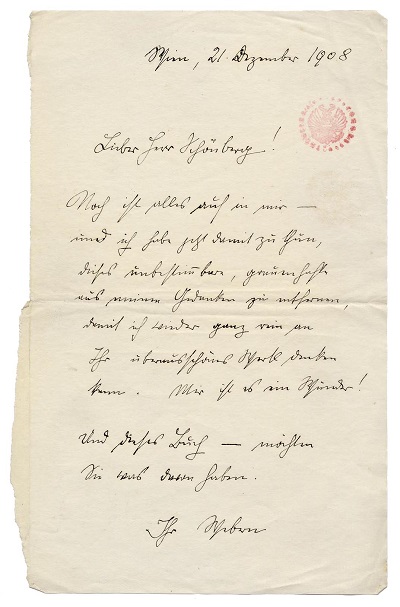 Wien, 21. Dezember 1908
Lieber Herr Schönberg!
Noch ist alles auf in mir —
und ich habe jetzt damit zu thun,
dieses unbestimmbare, grauenhafte
aus meinen Gedanken zu entfernen,
damit ich wieder ganz rein an
Ihr überausschönes Werk denken
kann. Mir ist es ein Wunder!
Und dieses Buch — möchten
Sie was davon haben.
Ihr Webern